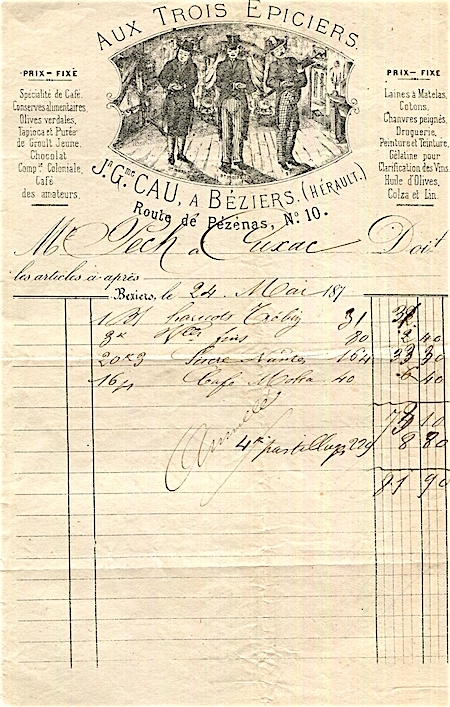 AUX TROIS EPICIERS.
PRIX – FIXE
Spécialité de Café.
Conserves alimentaires,
Olives verdales,
Tapioca et Purée
de Groult Jeune.
Chocolat
Comp.ie Coloniale,
Café
des amateurs.
PRIX – FIXE
Laines à Matelas,
Cotons,
Chanvres peignés,
Droguerie,
Peinture et Teinture,
Gélatine pour
Clarification des Vins,
Huile d'Olives,
Colza et Lin.
J.n G.me CAU, A BÉZIERS. (HÉRAULT.)
Route de Pézénas, N.º 10.
M.r Pech a Cuxac Doit
les articles ci-après
Béziers, le 24 Mai 187
31
fins 80 2 40
20 3 Sucre 164 33 30
16 Café Moka 40 6 40
10
4 pastilles 8 80
81 90